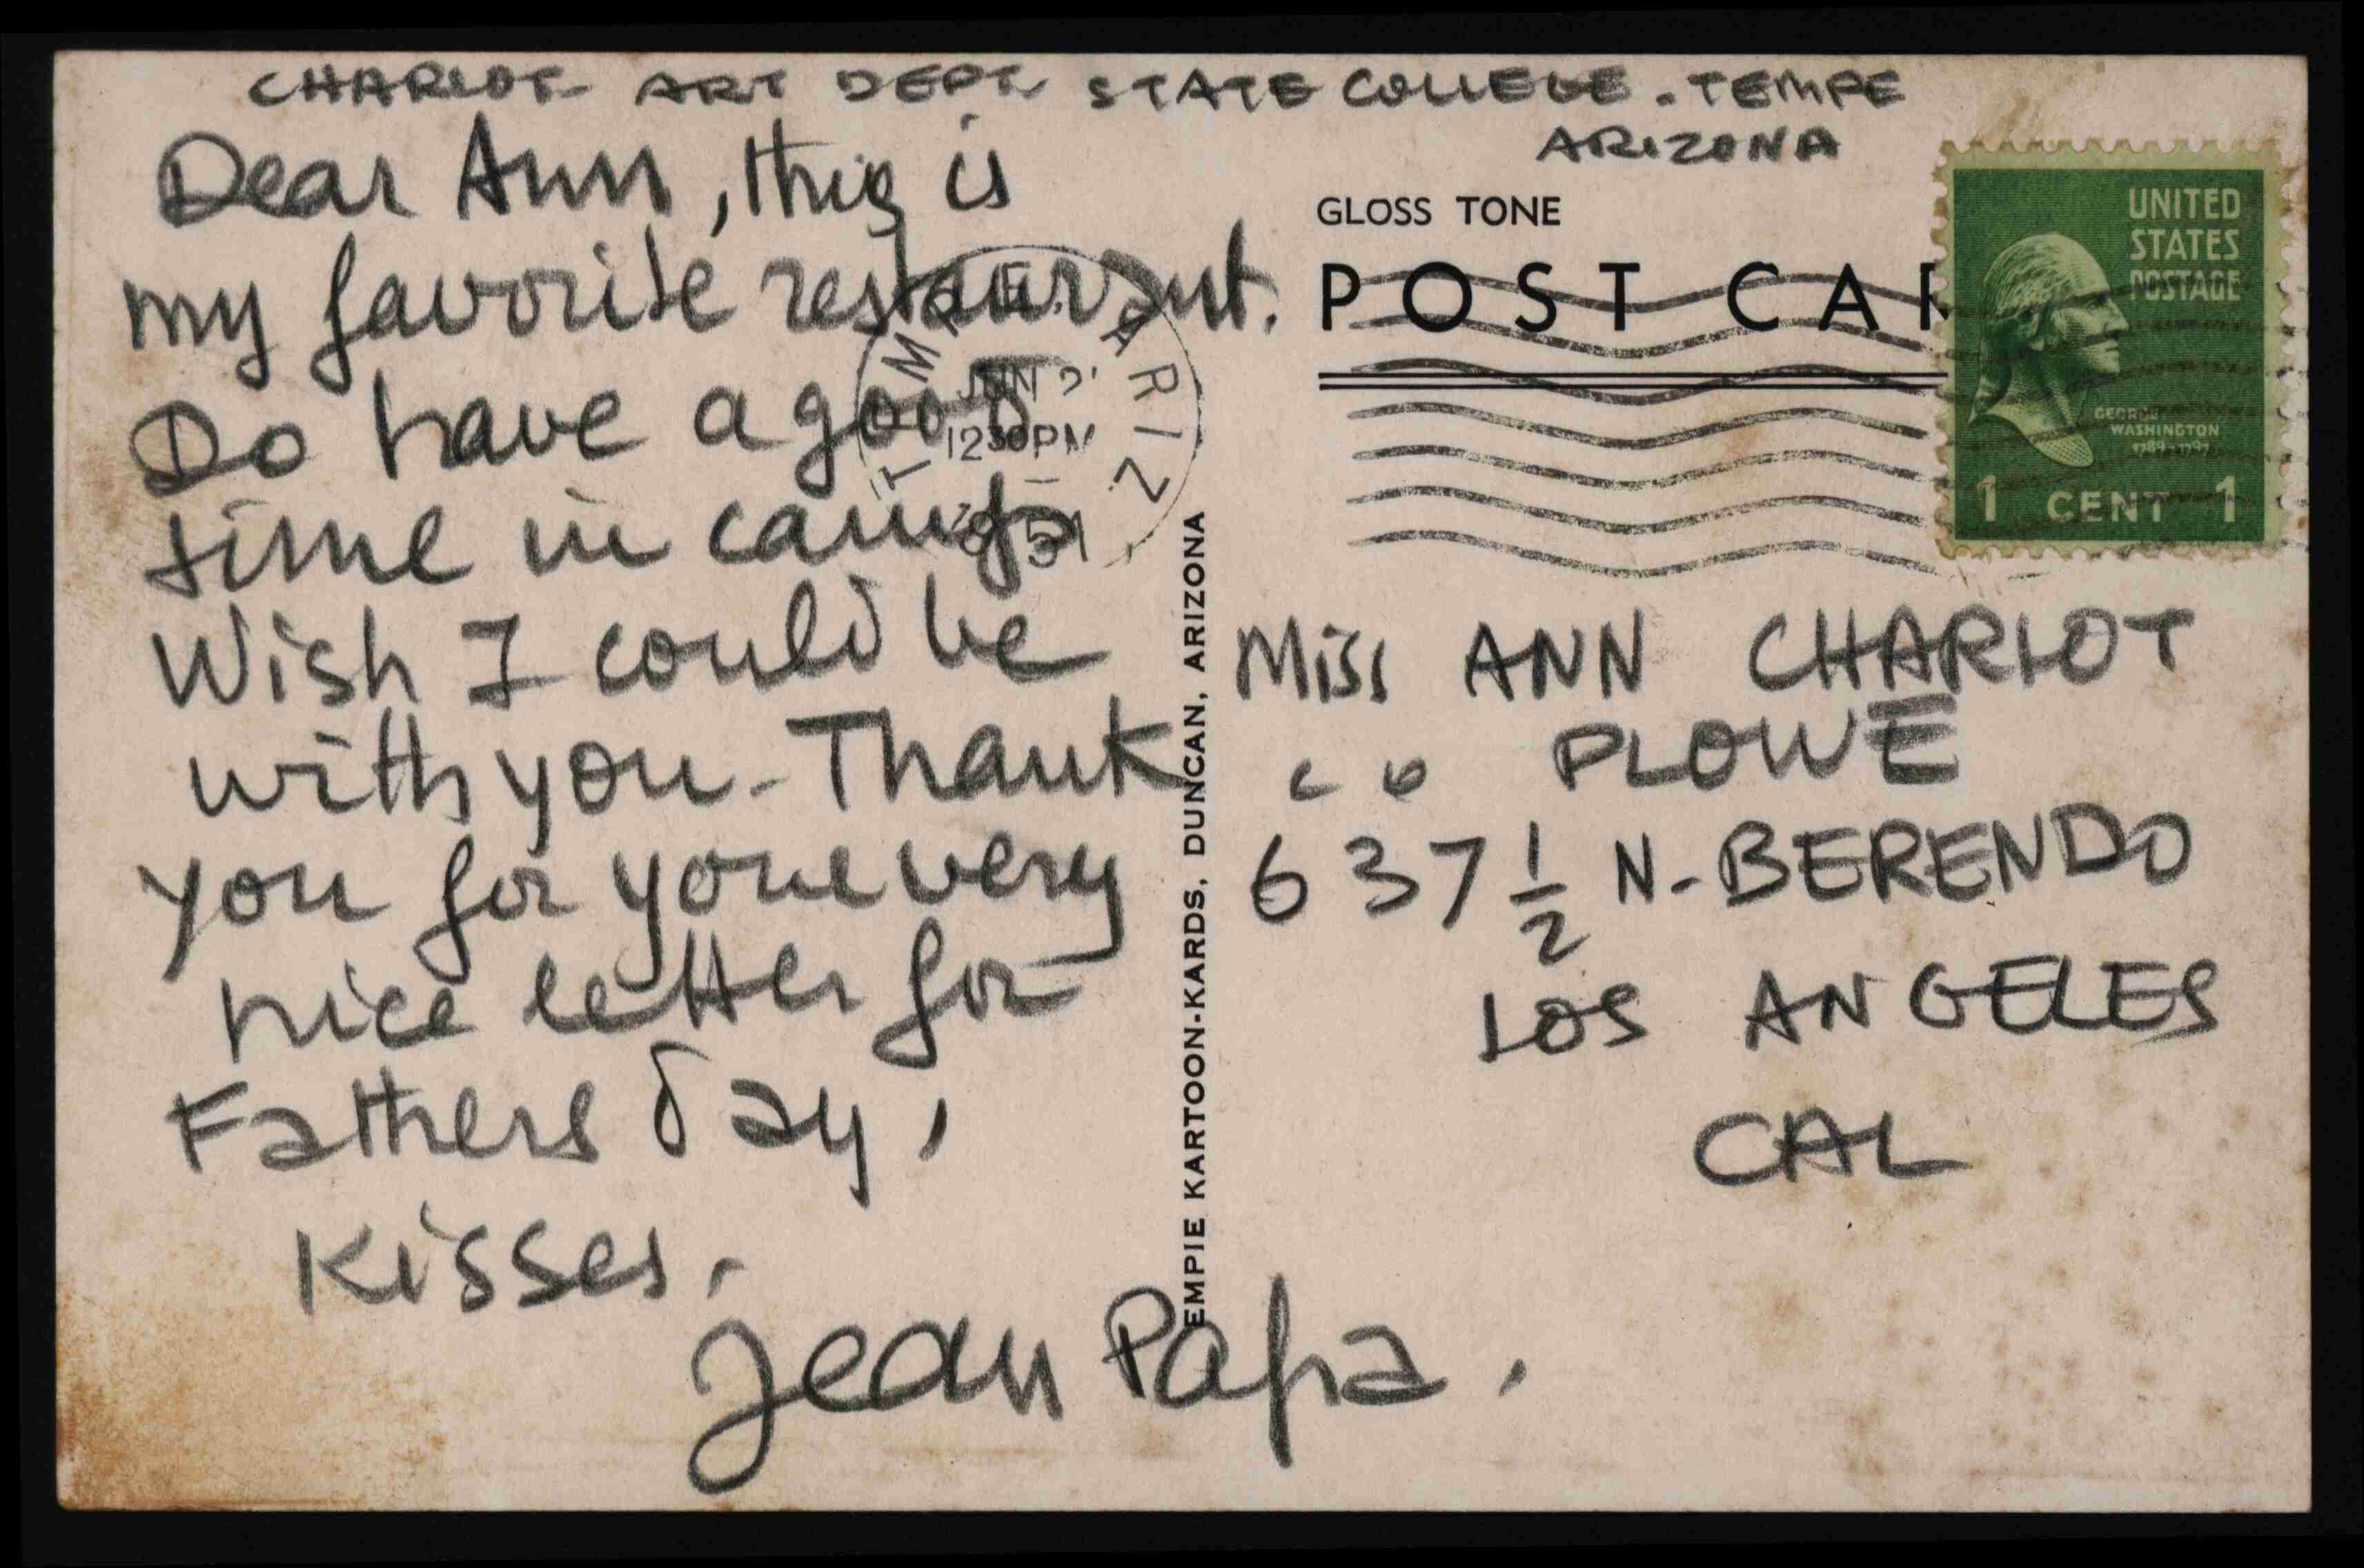 CHARLOT - ART DEPT. STATE COLLEGE. TEMPE
ARIZONA
Dear Ann, this is
my favorite restaurant.
Do have a good
time in camp.
Wish I could be
with you. Thank
you for your very
nice letter for
Fathers day,
Kisses.
Jean Papa.
TEMPE, ARIZ.
JUN
12 30 PM
1951
EMPIE KARTOON-KARDS, DUNCAN, ARIZONA
GLOSS TONE
POST CAR
UNITED
STATES
POSTAGE
GEORGE
WASHINGTON
1789-1797
1 CENT 1
Miss ANN CHARLOT
c o PLOWE
637 1/2 N. BERENDO
LOS ANGELES
CAL